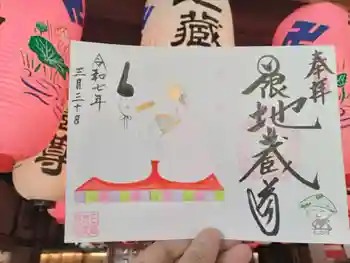 奉拝
根地蔵尊
令和七年
三月三十日
地蔵
尊